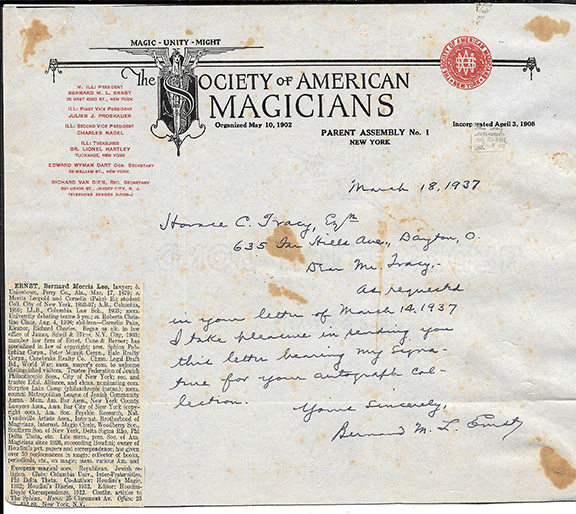 MAGIC - UNITY - MIGHT
The SOCIETY OF AMERICAN
MAGICIANS
Organized May 10, 1902
Incorporated April 3, 1908
PARENT ASSEMBLY No. 1
NEW YORK
M. ILL: PRESIDENT
BERNARD M. L. ERNST
25 WEST 43RD ST., NEW YORK
ILL: FIRST VICE PRESIDENT
JULIEN J. PROSKAUER
ILL: SECOND VICE PRESIDENT
CHARLES NAGEL
ILL: TREASURER
DR. LIONEL HARTLEY
TUCKAHOE, NEW YORK
EDWARD WYMAN DART SECRETARY
WILLIAM ST., NEW YORK
RICHARD VAN DIEN, REC. SECRETARY
UNION ST., JERSEY CITY, N. J.
TELEPHONE BERGEN
SOCIETY OF AMERICAN
NEW YORK
March 18, 1937
Horace C. Tracy, Esq.
635 Hills Ave., Dayton, O.
Dear Mr. Tracy,-
As requested
in your letter of March 14, 1937
I take pleasure in sending you
this letter bearing my signa-
ture for your autograph col-
lection.
Yours Sincerely,
Bernard M. L. Ernst
ERNST, Bernard Morris Lee, lawyer; b.
Uniontown, Perry Co., Ala., 17, 1879; s.
Morits Leopold and Cornelia E.; student
Coll. City of New York, A.B., Columbia,
1899; LL.B., Columbia Law Sch., 1902; mem.
University debating teams; m. Roberta Chris-
tine Aug. 4, 1908; children—Cornelia
Eleanor, Richard Charles. Began as clk. in law
office of James, Schell & N.Y. City, 1902;
member law firm of Ernst, Cane & Berner; has
specialized in law of copyright; pres. Sphinx Pub-
lishing Corp., Peter Music Corp., Realty
Corp., Realty Co. Chmn. Legal Draft
Bd., World War; mem. mayor's com. to welcome
distinguished visitors. Trustee Federation of Jewish
Philanthropic Socs., City of New York; sec. and
trustee Ednl. Alliance, and chmn. nominating com.
Surprise Lake Camp (philanthropic instn.); mem.
council Metropolitan League of Jewish Community
Assns. Mem. Am. Bar Assn., New York County
Lawyers Assn., Assn. Bar City of New York (copy-
right com.), Am. Soc. Psychic Research, Nat.
Vaudeville Artists Assn., Internat. Brotherhood of
Magicians, Internat. Magic Circle, Woodberry Soc.,
Southern Soc. of New York, Delta Sigma Rho, Phi
Delta Theta, etc. Life mem., pres. Soc. of Am.
Magicians since 1926, succeeding Houdini; owner of
Houdini's pvt. papers and correspondence; has given
over 50 performances in magic; collector of books,
periodicals, etc., on magic; mem. various Am. and
European magical socs. Republican. Jewish re-
ligion. Clubs: Columbia Univ., Inter-Fraternities,
Phi Delta Theta. Co-Author: Houdini's Magic,
1932; Houdini's Diaries, 1932. Editor: Houdini-
Doyle Correspondence, 1932. Contbr. articles to
The Sphinx. Home: 25 Claremont Av. Office: 25
W. 43d st., New York, N.Y.